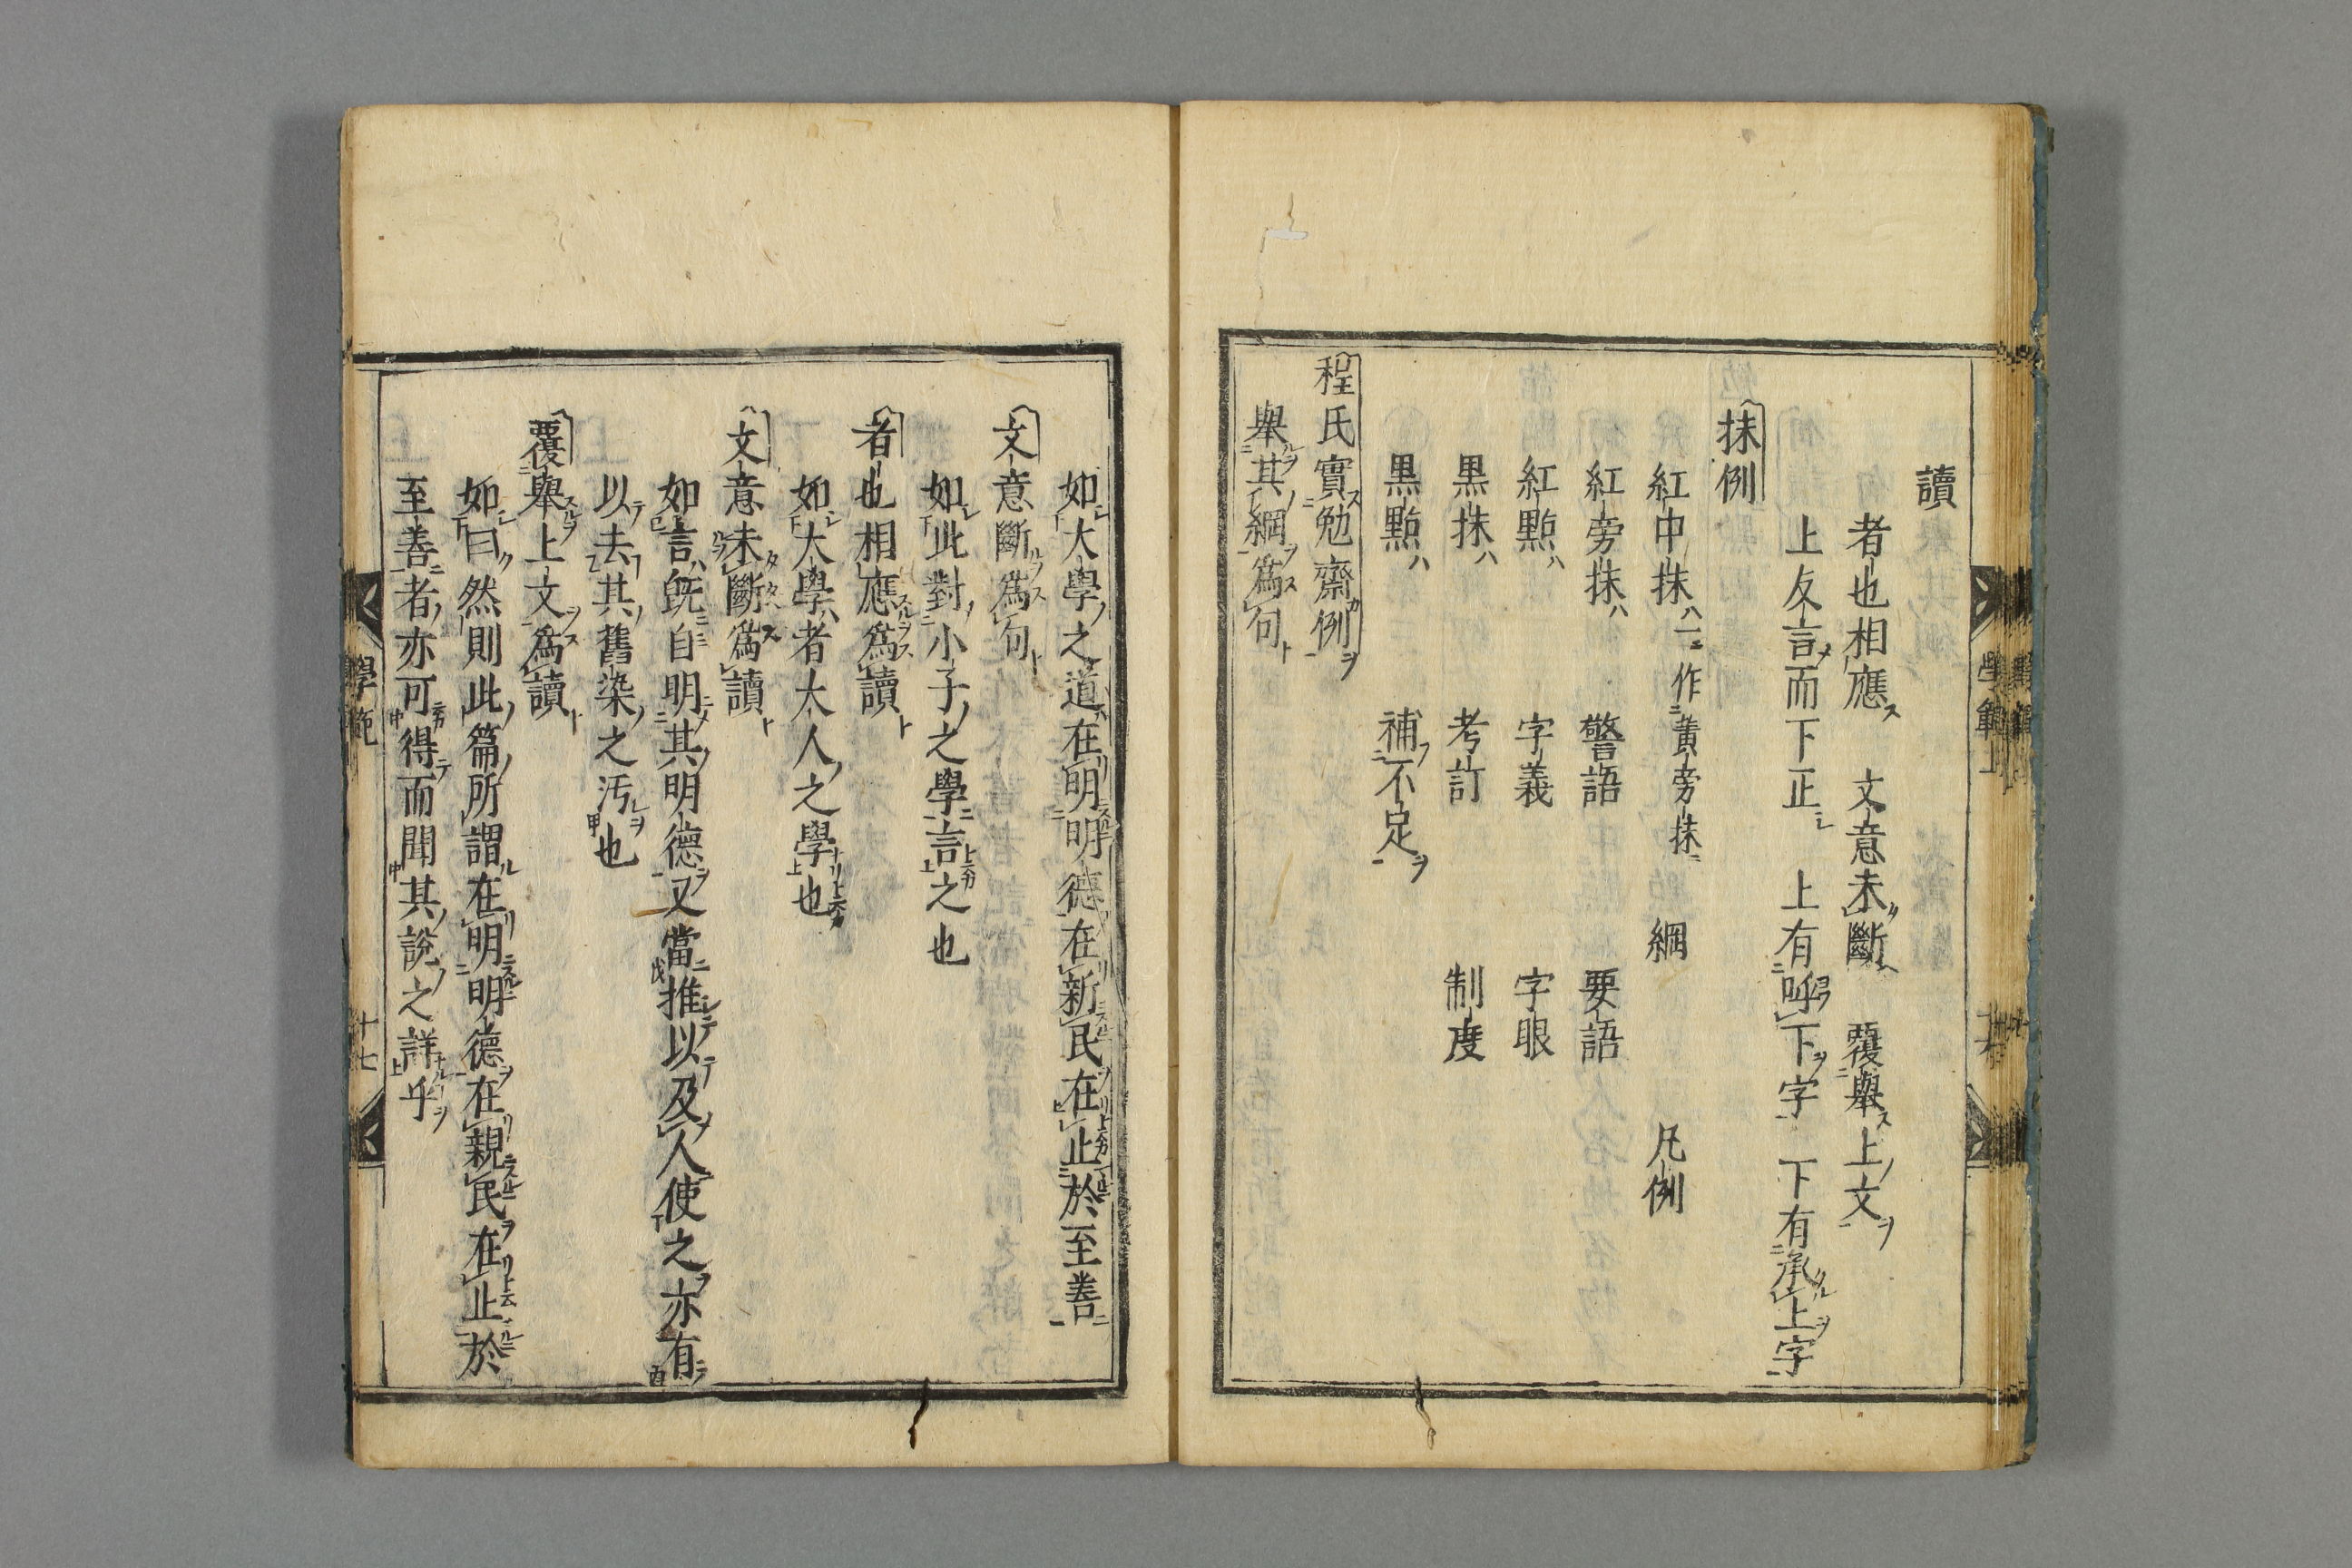 讀
者也相應　文意未斷　覆舉上文
上反言而下正　上有呼下字　下有承上字
抹例
紅中抹ハ一ニ作黃旁抹ニ　綱　凡例
紅旁抹ハ　警語　要語
紅點ハ　字義　字眼
黒抹ハ　考訂　制度
黒點ハ　補不足
程氏實勉齋例
舉其綱爲句
如大學之道在明明德在新民在止於至善
文意斷爲句
如此對小子之學言之也
者也相應爲讀
如大學者大人之學也
文意未斷爲讀
如言既自明其明德又當推以及人使之亦有
以去其舊染之汚也
覆舉上文爲讀
如曰然則此篇所謂在明明德在親民在止於
至善者亦可得而聞其說之詳乎
學範
十七